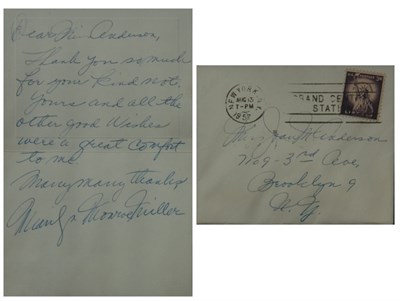 Dear Miss Anderson,
Thank you so much
for your kind note,
Yours and all the
other good wishes
were a great comfort
to me
Many many thanks
Marilyn Monroe Miller
NEW YORK, N.Y.
AUG
7-PM
1957
GRAND CENTRAL
STATION
Miss Jan Anderson
3rd Ave,
Brooklyn 9
N. Y.